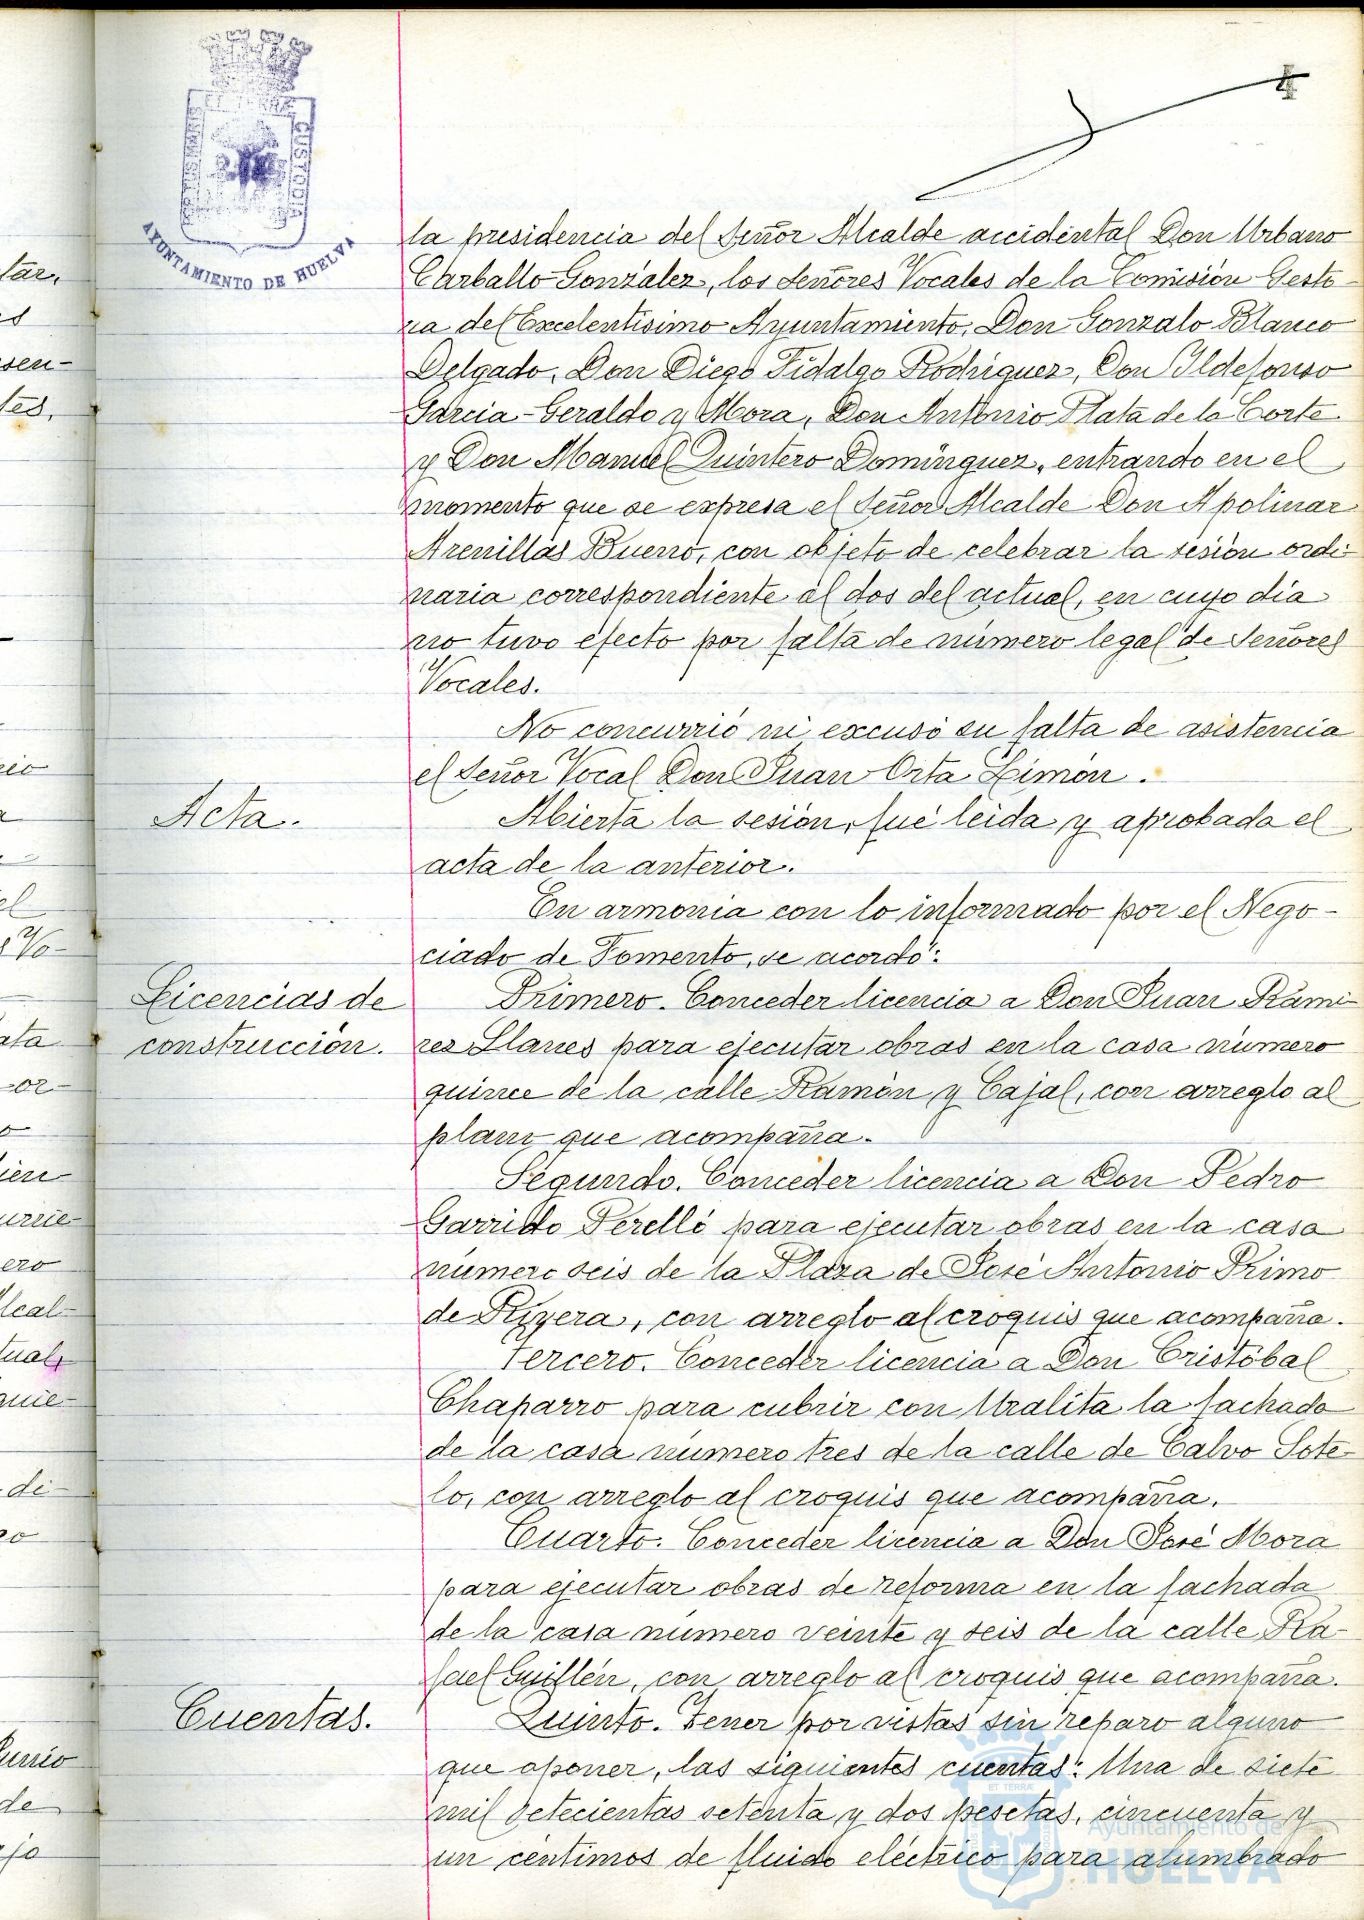 4
ET TERRÆ
PORTUS MARIS
CUSTODIA
AYUNTAMIENTO DE HUELVA
la presidencia del Señor Alcalde accidental Don Urbano
Carballo González, los Señores Vocales de la Comisión Gesto-
ra del Excelentisimo Ayuntamiento, Don Gonzalo Blanco
Delgado, Don Diego Fidalgo Rodriguez, Don Ildefonso
Garcia-Geraldo y Mora, Don Antonio Plata de la Corte
y Don Manuel Quintero Dominguez, entrando en el
momento que se expresa el Señor Alcalde Don Apolinar
Arenillas Bueno, con objeto de celebrar la sesión ordi-
naria correspondiente al dos del actual, en cuyo dia
no tuvo efecto por falta de número legal de Señores
Vocales.
No concurrió ni excusó su falta de asistencia
el Señor Vocal Don Juan Orta Limón.
Acta.
Abierta la sesión, fué leida y aprobada el
acta de la anterior.
En armonia con lo informado por el Nego-
ciado de Fomento, se acordó:
Licencias de
construcción.
Primero. Conceder licencia a Don Juan Rami-
rez Llanes para ejecutar obras en la casa número
quince de la calle Ramón y Cajal, con arreglo al
plano que acompaña.
Segundo. Conceder licencia a Don Pedro
Garrido Perelló para ejecutar obras en la casa
número seis de la Plaza de José Antonio Primo
de Rivera, con arreglo al croquis que acompaña.
Tercero. Conceder licencia a Don Cristóbal
Chaparro para cubrir con Uralita la fachada
de la casa número tres de la calle de Calvo Sote-
lo, con arreglo al croquis que acompaña.
Cuarto. Conceder licencia a Don José Mora
para ejecutar obras de reforma en la fachada
de la casa número veinte y seis de la calle Ra-
fael Guillén, con arreglo al croquis que acompaña.
Cuentas.
Quinto. Tener por vistas sin reparo alguno
que oponer, las siguientes cuentas: Una de siete
mil setecientas setenta y dos pesetas, cincuenta y
un céntimos de fluido eléctrico para alumbrado
Ayuntamiento de
HUELVA